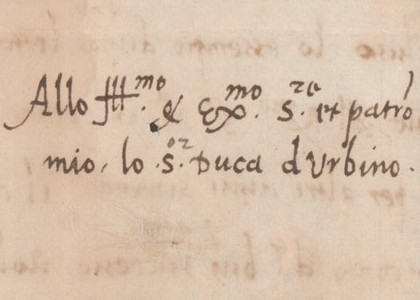 Allo Ill.mo & Ex.mo S.re et patrõ
mio, lo .S.or Duca d'Urbino.